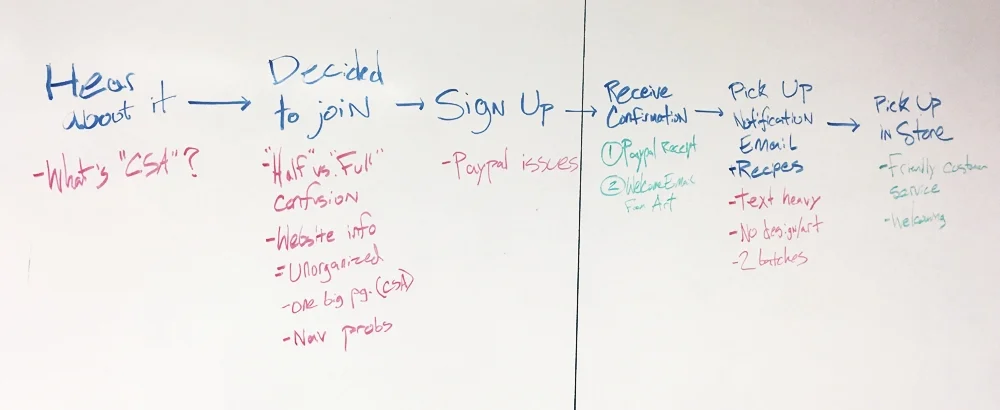 Hear
about it
-What's "CSA"?
Decided
to join
-"Half" vs. "Full"
Confusion
-Website info
=Unorganized
-one big pg. (CSA)
-Nav probs
Sign Up
-Paypal issues
Receive
Confirmation
① Paypal Receipt
② Welcome Email
From Art
Pick Up
Notification
Email
+Recpes
-Text heavy
-No design/art
-2 batches
Pick Up
in Store
-Friendly customer
service
-Welcoming